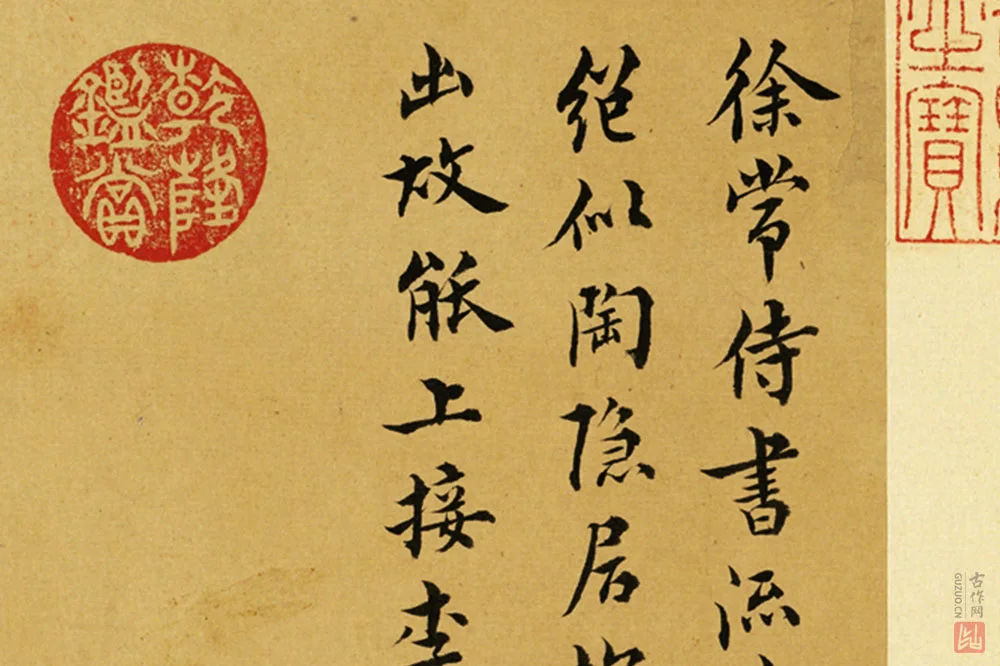 寶
徐常侍書流
絕似陶隱居
出故能上接李
乾隆
鑑賞
古作网
GUZUO.CN